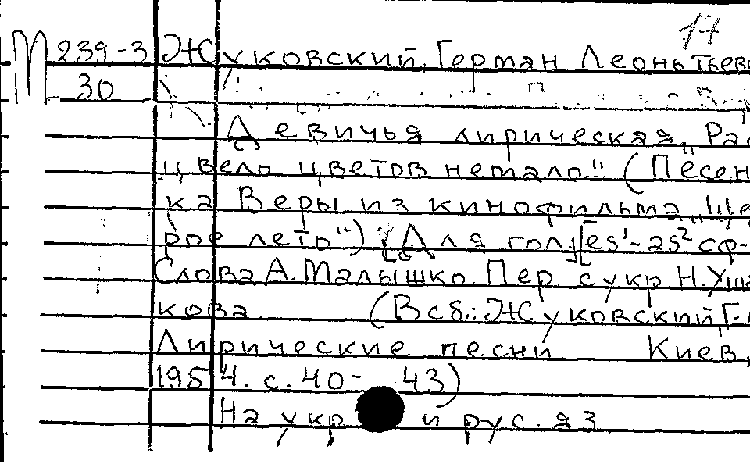 17
М 239-3 Жуковский, Герман Леонтьев
30
Девичья лирическая „Рас
цвело цветов немало" (Песен
ка Веры из кинофильма „Ще
рое лето") [Для гол. [es¹-as² сф-
Слова А. Малышко. Пер. с укр. Н. Уша
кова. (В сб.: Жуковский Г.
Лирические песни Киев,
1954. с. 40-43)
На укр и рус. яз